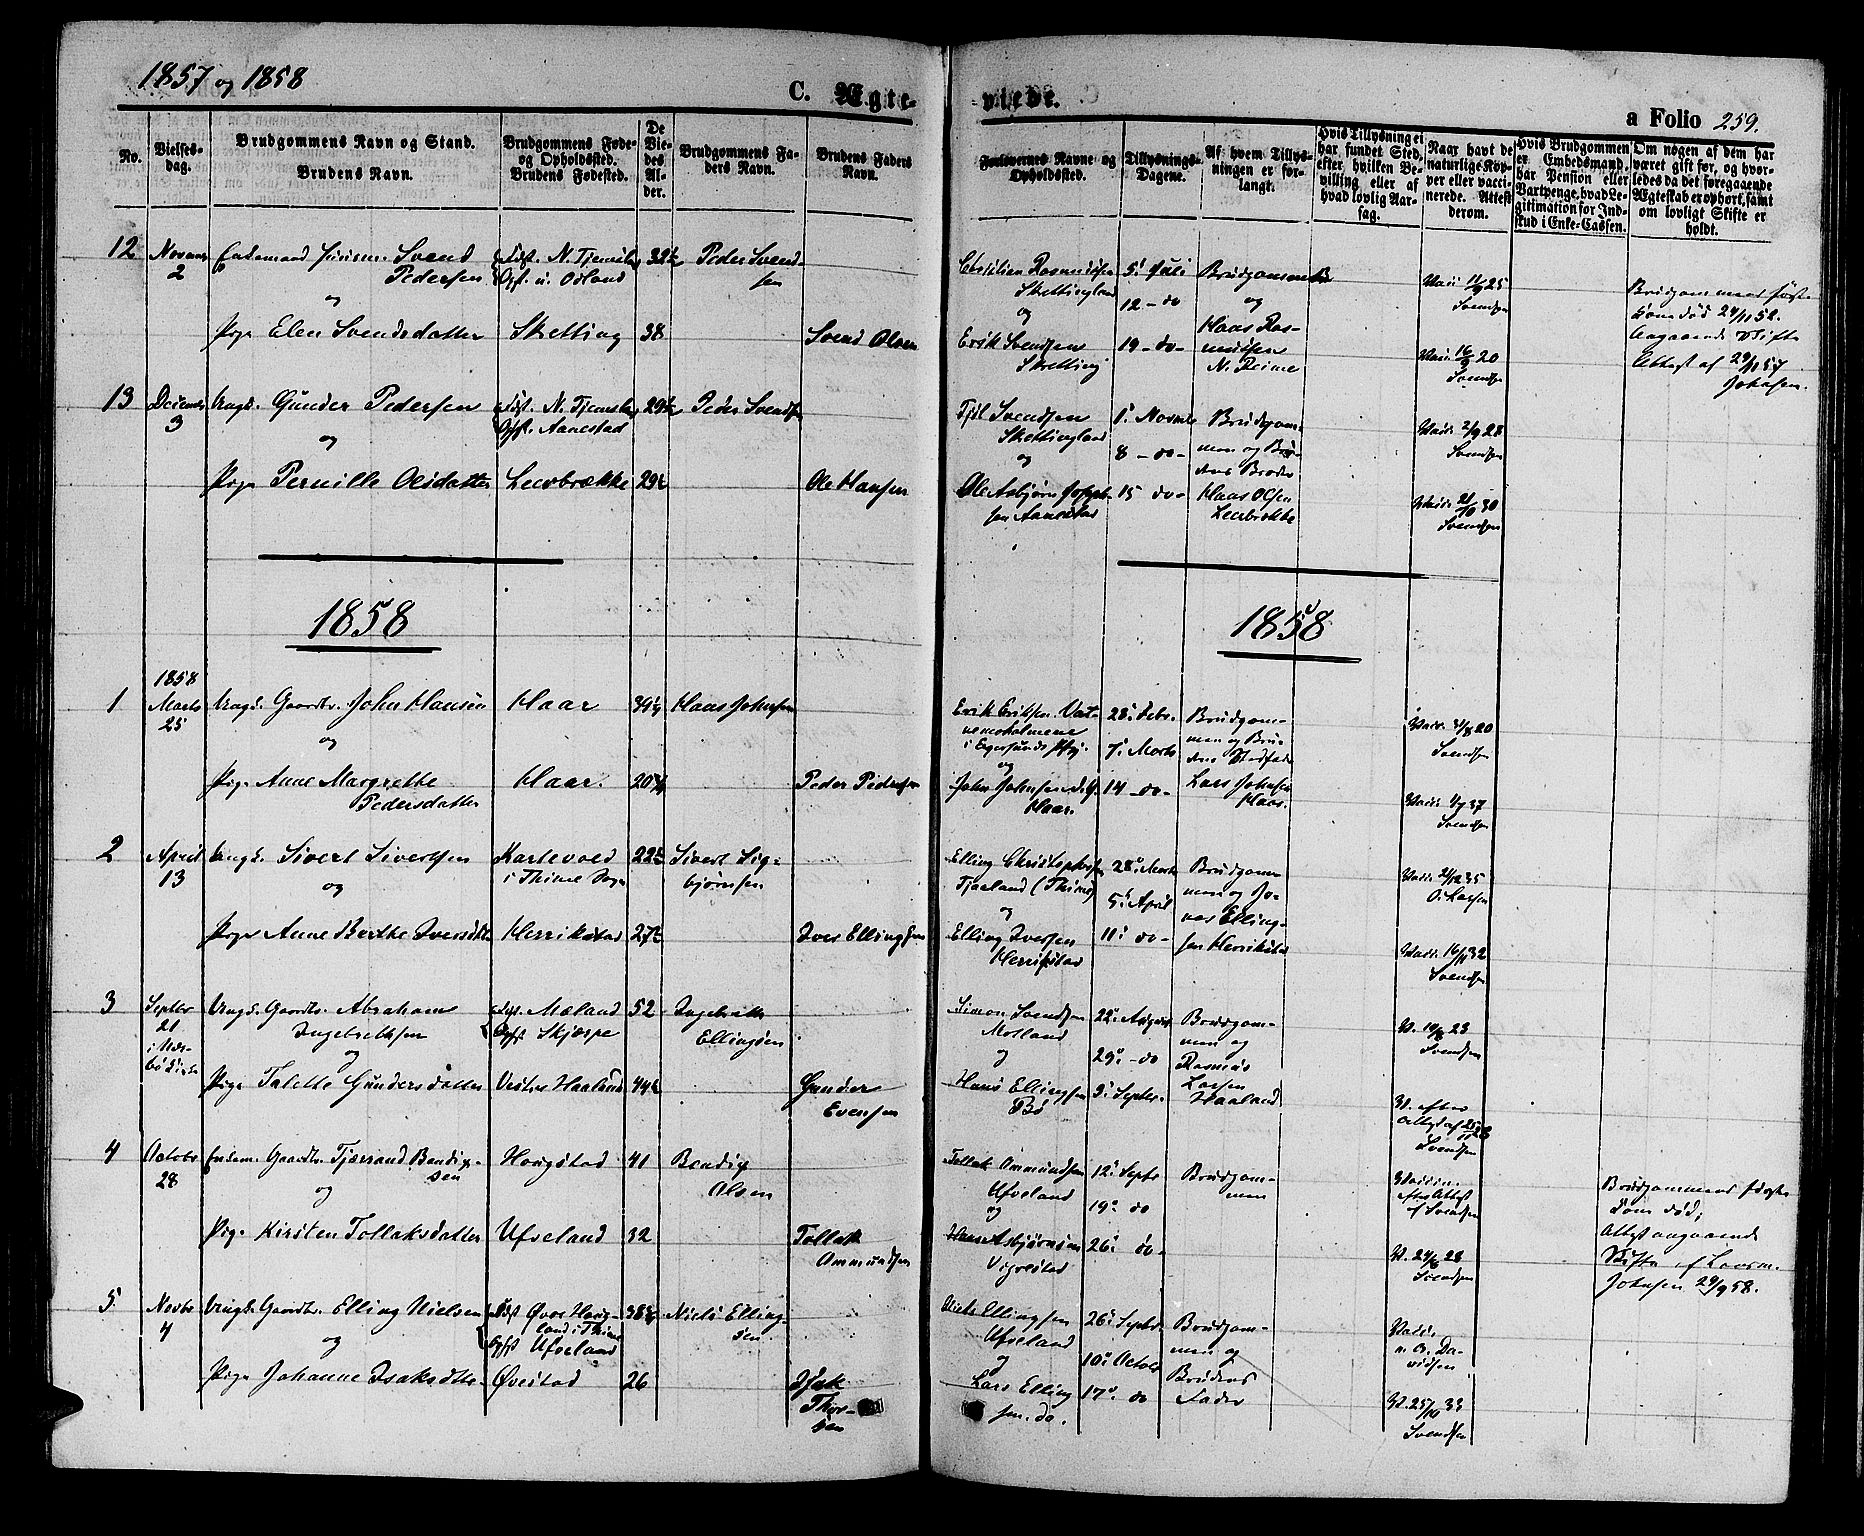 1857 og 1858
C. Ægte-
viede.
a Folio 259.
No.
Vielses-
dag.
Brudgommens Navn og Stand.
Brudens Navn.
Brudgommens Føde-
og Opholdssted.
Brudens Fødested.
De
Vie-
des
Al-
der.
Brudgommens Fa-
ders Navn.
Brudens Faders
Navn.
Forlovernes Navne og
Opholdssted.
Tillysnings-
Dagene.
Af hvem Tillys-
ningen er for-
langt.
Hvis Tillysning ei
har fundet Sted,
efter hvilken Be-
villing eller af
hvad lovlig Aar-
sag.
Naar havt de
naturlige Kop-
per eller vacci-
nerede. Attest
derom.
Hvis Brudgommen
er Embedsmand,
har Pension eller
Vartpenge, hvad Le-
gitimation for Ind-
skud i Enke-Cassen.
Om nogen af dem har
været gift før, og hvor-
ledes da det foregaaende
Ægteskab er ophørt, samt
om lovligt Skifte er
holdt.
12
2
Enkemand Svend
Pedersen
og
Pige Elen Svendsdatter
N. Tjemsla
Odland
Skretting
32½
38
Peder Svend-
sen
Svend Olsen
Christian Rasmussen
Skettingland
og
Erik Svendsen
Skretting
5' Juli
12 - do
19 - do -
Brudgommen
og
Hans Ras-
mussen
N. Reime
Vacc. 11/9 25
Svendsen
Vacc. 16/9 20
Svendsen
Brudgommens første
Kone død 24/11 52.
Angaaende Skifte
Attest af 29/10 57
Johnsen.
13
3
Ungk. Gunder Pedersen
og
Pige Pernille Olsdatter
N. Tjemsla
Opst. Aanestad
Leerbrække
29½
29½
Peder Svendsen
Ole Hansen
Svendsen
Skettingland
og
Ole Asbjørn
sen Aanestad
1' Novmb
8 - do -
15 do -
Brudgom-
men og Bru-
dens Broder
Hans Olsen
Leerbrække
Vacc. 2/9 28
Svendsen
Vacc. 21/10 30
Svendsen
1858
1858
1
1858
Marts
25
Ungk. Gaardbr. John Hansen
og
Pige Anne Margrethe
Pedersdatter
Haar
Haar.
20¾
Hans Johnsen
Peder Pedersen
Erik Eriksen Vat-
nemoholmene
i Egersunds
og
John Johnsen
Haar.
28' Febr.
7' Marts
14 - do -
Brudgom-
men og Bru-
dens
Lars Johnsen
Haar.
Vacc. 31/8 20
Svendsen
Vacc. 1/9 37
Svendsen
2
April
13
Ungk. Sivert Sivertsen
og
Pige Anne Berthe Iversdtr
Kartevold
i Thime Sogn
Herrikstad
22½
27½
Sivert Sig-
bjørnsen
Iver Ellingsen
Elling Christophersen
Tjaaland (Thime)
og
Elling Iversen
Herrikstad
28' Marts
5' April
11' do -
Brudgom-
men og Jo-
nas Elling-
sen Herrikstad
Vacc. 21/12 35
O. Larsen
Vacc. 16/11 32
Svendsen
3
Septbr
21
Ungk. Gaardbr. Abraham
Ingebrethsen
og
Pige Talette Gundersdatter
Mæland
Opst Skjærpe
Vestre Haaland
52
44½
Ingebreth
Ellingsen
Gunder
Evensen
Simon Svendsen
Motland
og
Hans Ellingsen
Bø
22' August
29' - do
5' Septbr.
Brudgom-
men og
Rasmus
Larsen
Haaland
V. 19/8 23
Svendsen
V. efter
Attest af 25/11 28
Svendsen
4
Octobr
28
Enkem. Gaardbr. Tjærrand Bendix-
sen
og
Pige Kirsten Tollaksdatter
Hougstad
Ufveland
41
32
Bendix
Olsen
Tollak
Ommundsen
Tollak Ommundsen
Ufveland
og
Hans Asbjørnsen
Vigrestad
12' Septr
19' do
26' do -
Brudgom-
men
Vaccin.
efter Attest
f Svendsen
V. 24/8 28
Svendsen
Brudgommens første
Kone død;
Attest angaaende
Skifte af Lensm.
Johnsen 29/9 58.
5
Novbr
4
Ungk. Gaardbr. Elling Nielsen
og
Pige Johanne Isaksdtr.
Fdst Øvre Houg-
land i Thime
Opst Ufveland
Øvestad
38½
26
Niels Elling-
sen
Isak
Thor-
sen
Niels Ellingsen
Ufveland
og
Lars Elling
sen. do.
26' Septbr
10' Octobr
17' do
Brudgom-
men og
Brudens
Fader
Vacc.
Da-
vidsen
V. 25/10 33
Svendsen